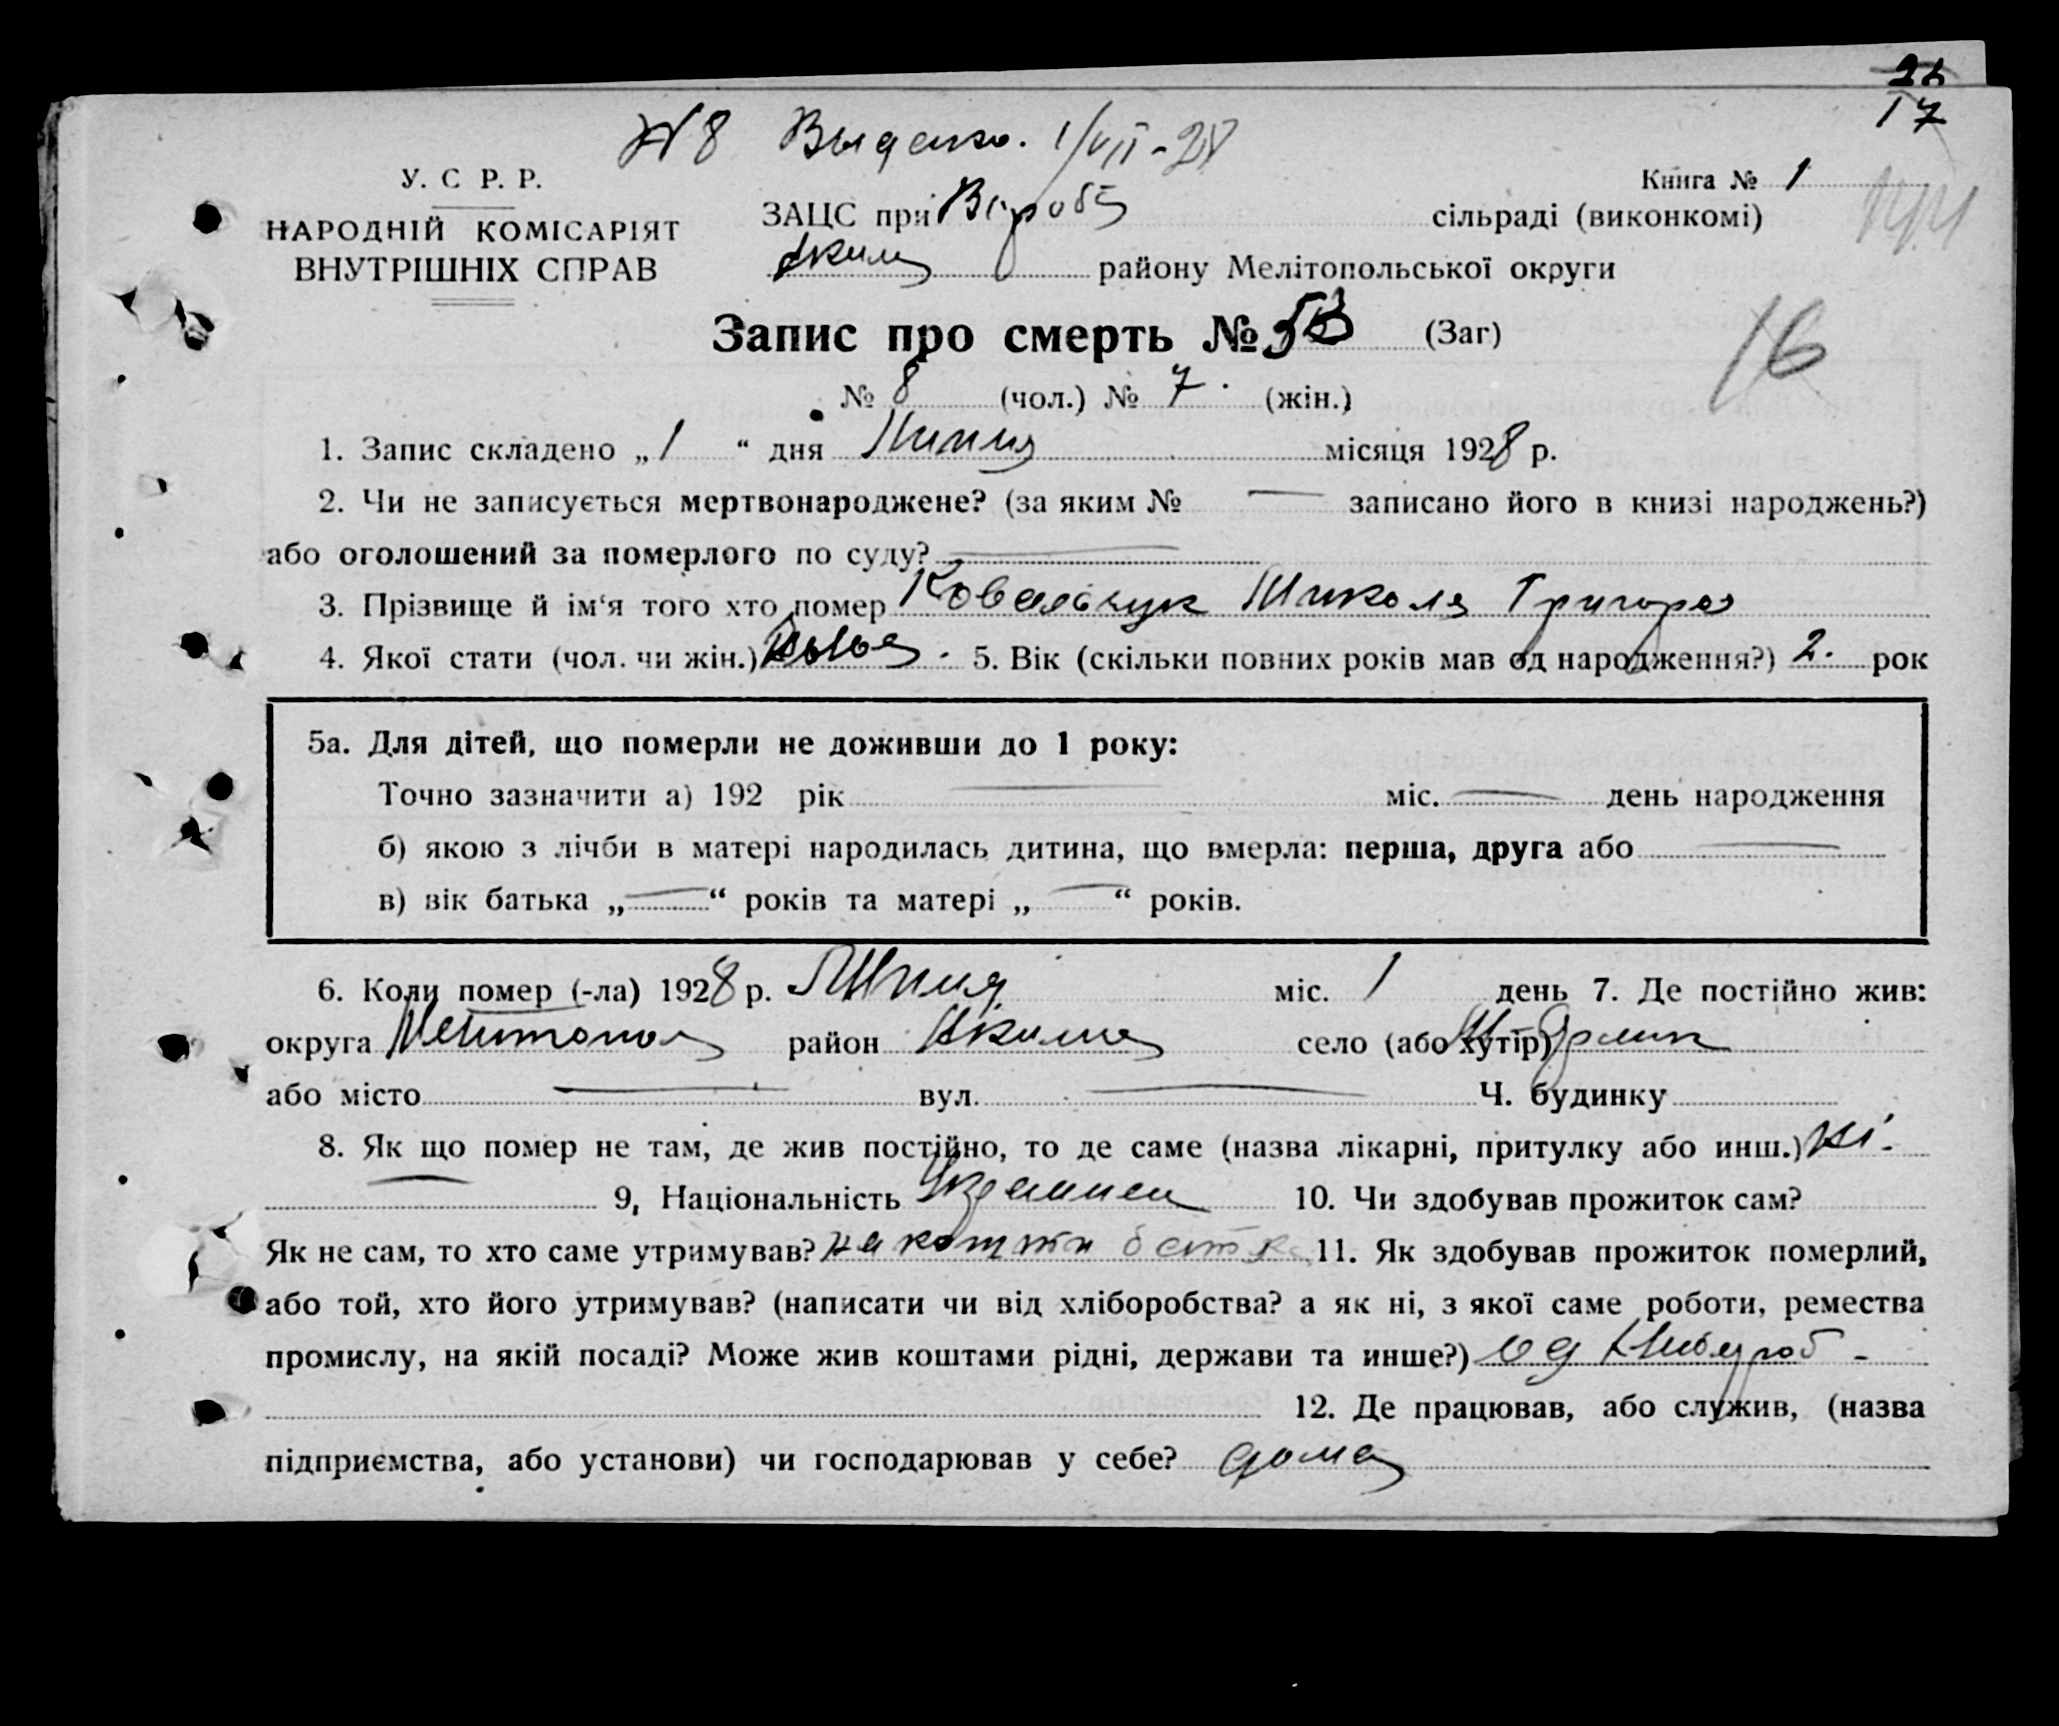 26
17
№ 8 Выдано. 1/VII-28
У. С Р. Р.
НАРОДНІЙ КОМІСАРІЯТ
ВНУТРІШНІХ СПРАВ
Книга № 1
ЗАЦС при сільраді (виконкомі)
Аким району Мелітопольської округи
16
Запис про смерть № (Заг)
№ 8 (чол.) № 7. (жін.)
1. Запис складено „1“ дня Липня місяця 1928 р.
2. Чи не записується мертвонароджене? (за яким № — записано його в книзі народжень?)
або оголошений за померлого по суду? —
3. Прізвище й ім‘я того хто помер Ковальчук Микола Григоров
4. Якої стати (чол. чи жін.) 5. Вік (скільки повних років мав од народження?) 2. рок
5а. Для дітей, що померли не доживши до 1 року:
Точно зазначити а) 192 рік — міс. — день народження
б) якою з лічби в матері народилась дитина, що вмерла: перша, друга або —
в) вік батька „—“ років та матері „—“ років.
6. Коли помер (-ла) 1928 р. Липня міс. 1 день 7. Де постійно жив:
округа Мелітопол район Акима село (або хутір)
або місто — вул. — Ч. будинку
8. Як що помер не там, де жив постійно, то де саме (назва лікарні, притулку або инш.) ні-
— 9, Національність Украинец 10. Чи здобував прожиток сам?
Як не сам, то хто саме утримував? на кошти батька 11. Як здобував прожиток померлий,
або той, хто його утримував? (написати чи від хліборобства? а як ні, з якої саме роботи, ремества
промислу, на якій посаді? Може жив коштами рідні, держави та инше?) од хлібороб -
12. Де працював, або служив, (назва
підприємства, або установи) чи господарював у себе? дома